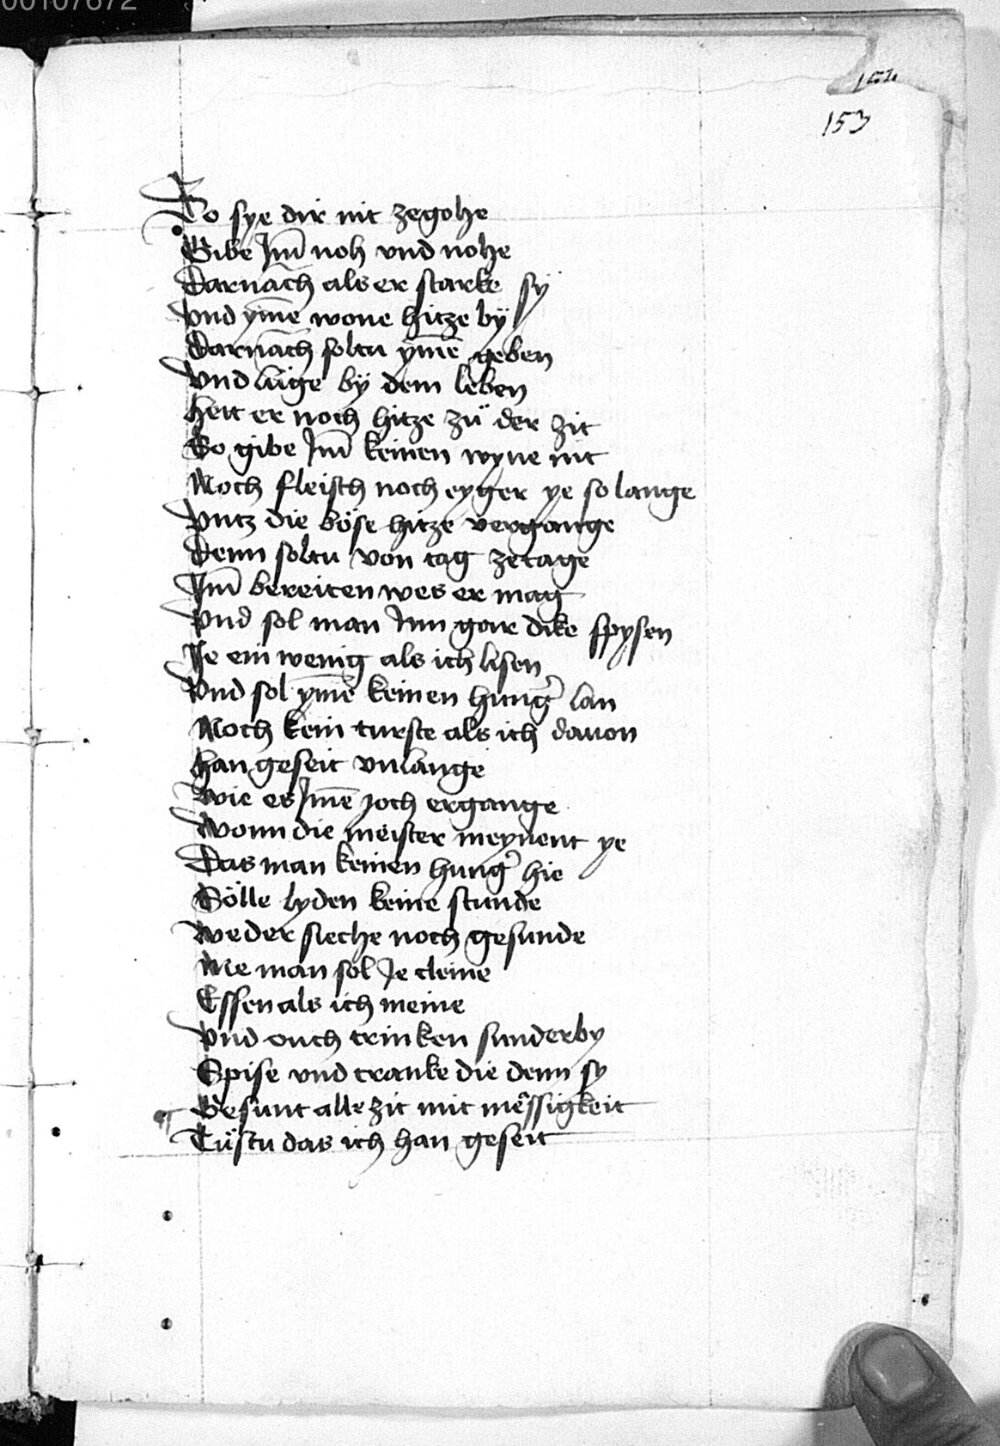 00107672
152
153
So sye dir nit zegohe
Gibe Im̄ noh vnd nohe
Darnach als er starke sÿ
vnd ym̄e wone hitze bÿ
Darnach soltu ym̄e geben
Vnd lüge bÿ dem leben
Hett er noch hitze zü der zit
So gibe Im̄ keinen wyne nit
Noch fleisch noch eyger ye so lange
Vntz die böse hitze vergange
Denn soltu von tag zetage
Im̄ bereiten wes er mag
Vnd sol man Inn gar dike spysen
Ie ein wenig als ich lisen
Vnd sol ym̄e keinen hung̉ lan
Noch kein turste als ich dauon
han geseit vnlange
Wie es Im̄e joch ergange
Wonn die meister meynent ye
Das man keinen hung̉ hie
Sölle lyden keine stunde
Weder sieche noch gesunde
Me man sol Ie cleine
Essen als ich meine
Vnd ouch trinken sunderby
Spise vnd tranke die denn sy
Gesunt alle zit mit messigkeit
Tüstu das ich han geseit